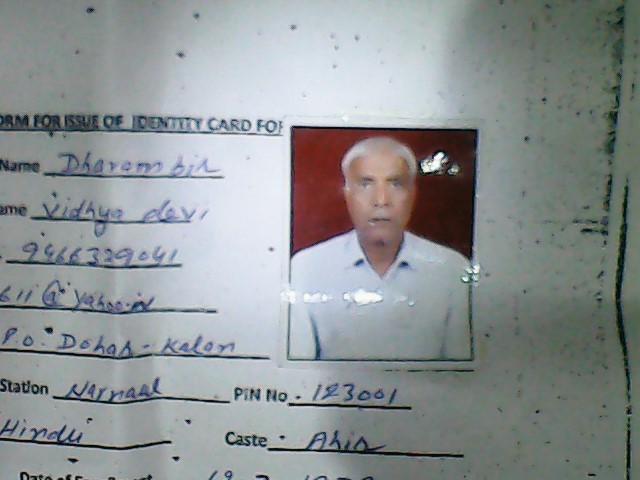 ORM FOR ISSUE OF IDENTITY CARD FOR
Name Dharambir
ame Vidhya devi
9466329041
611@yahoo.in
P.O. Dohar-Kalan
Station Narnaul PIN No. 123001
Hindi Caste Ahir